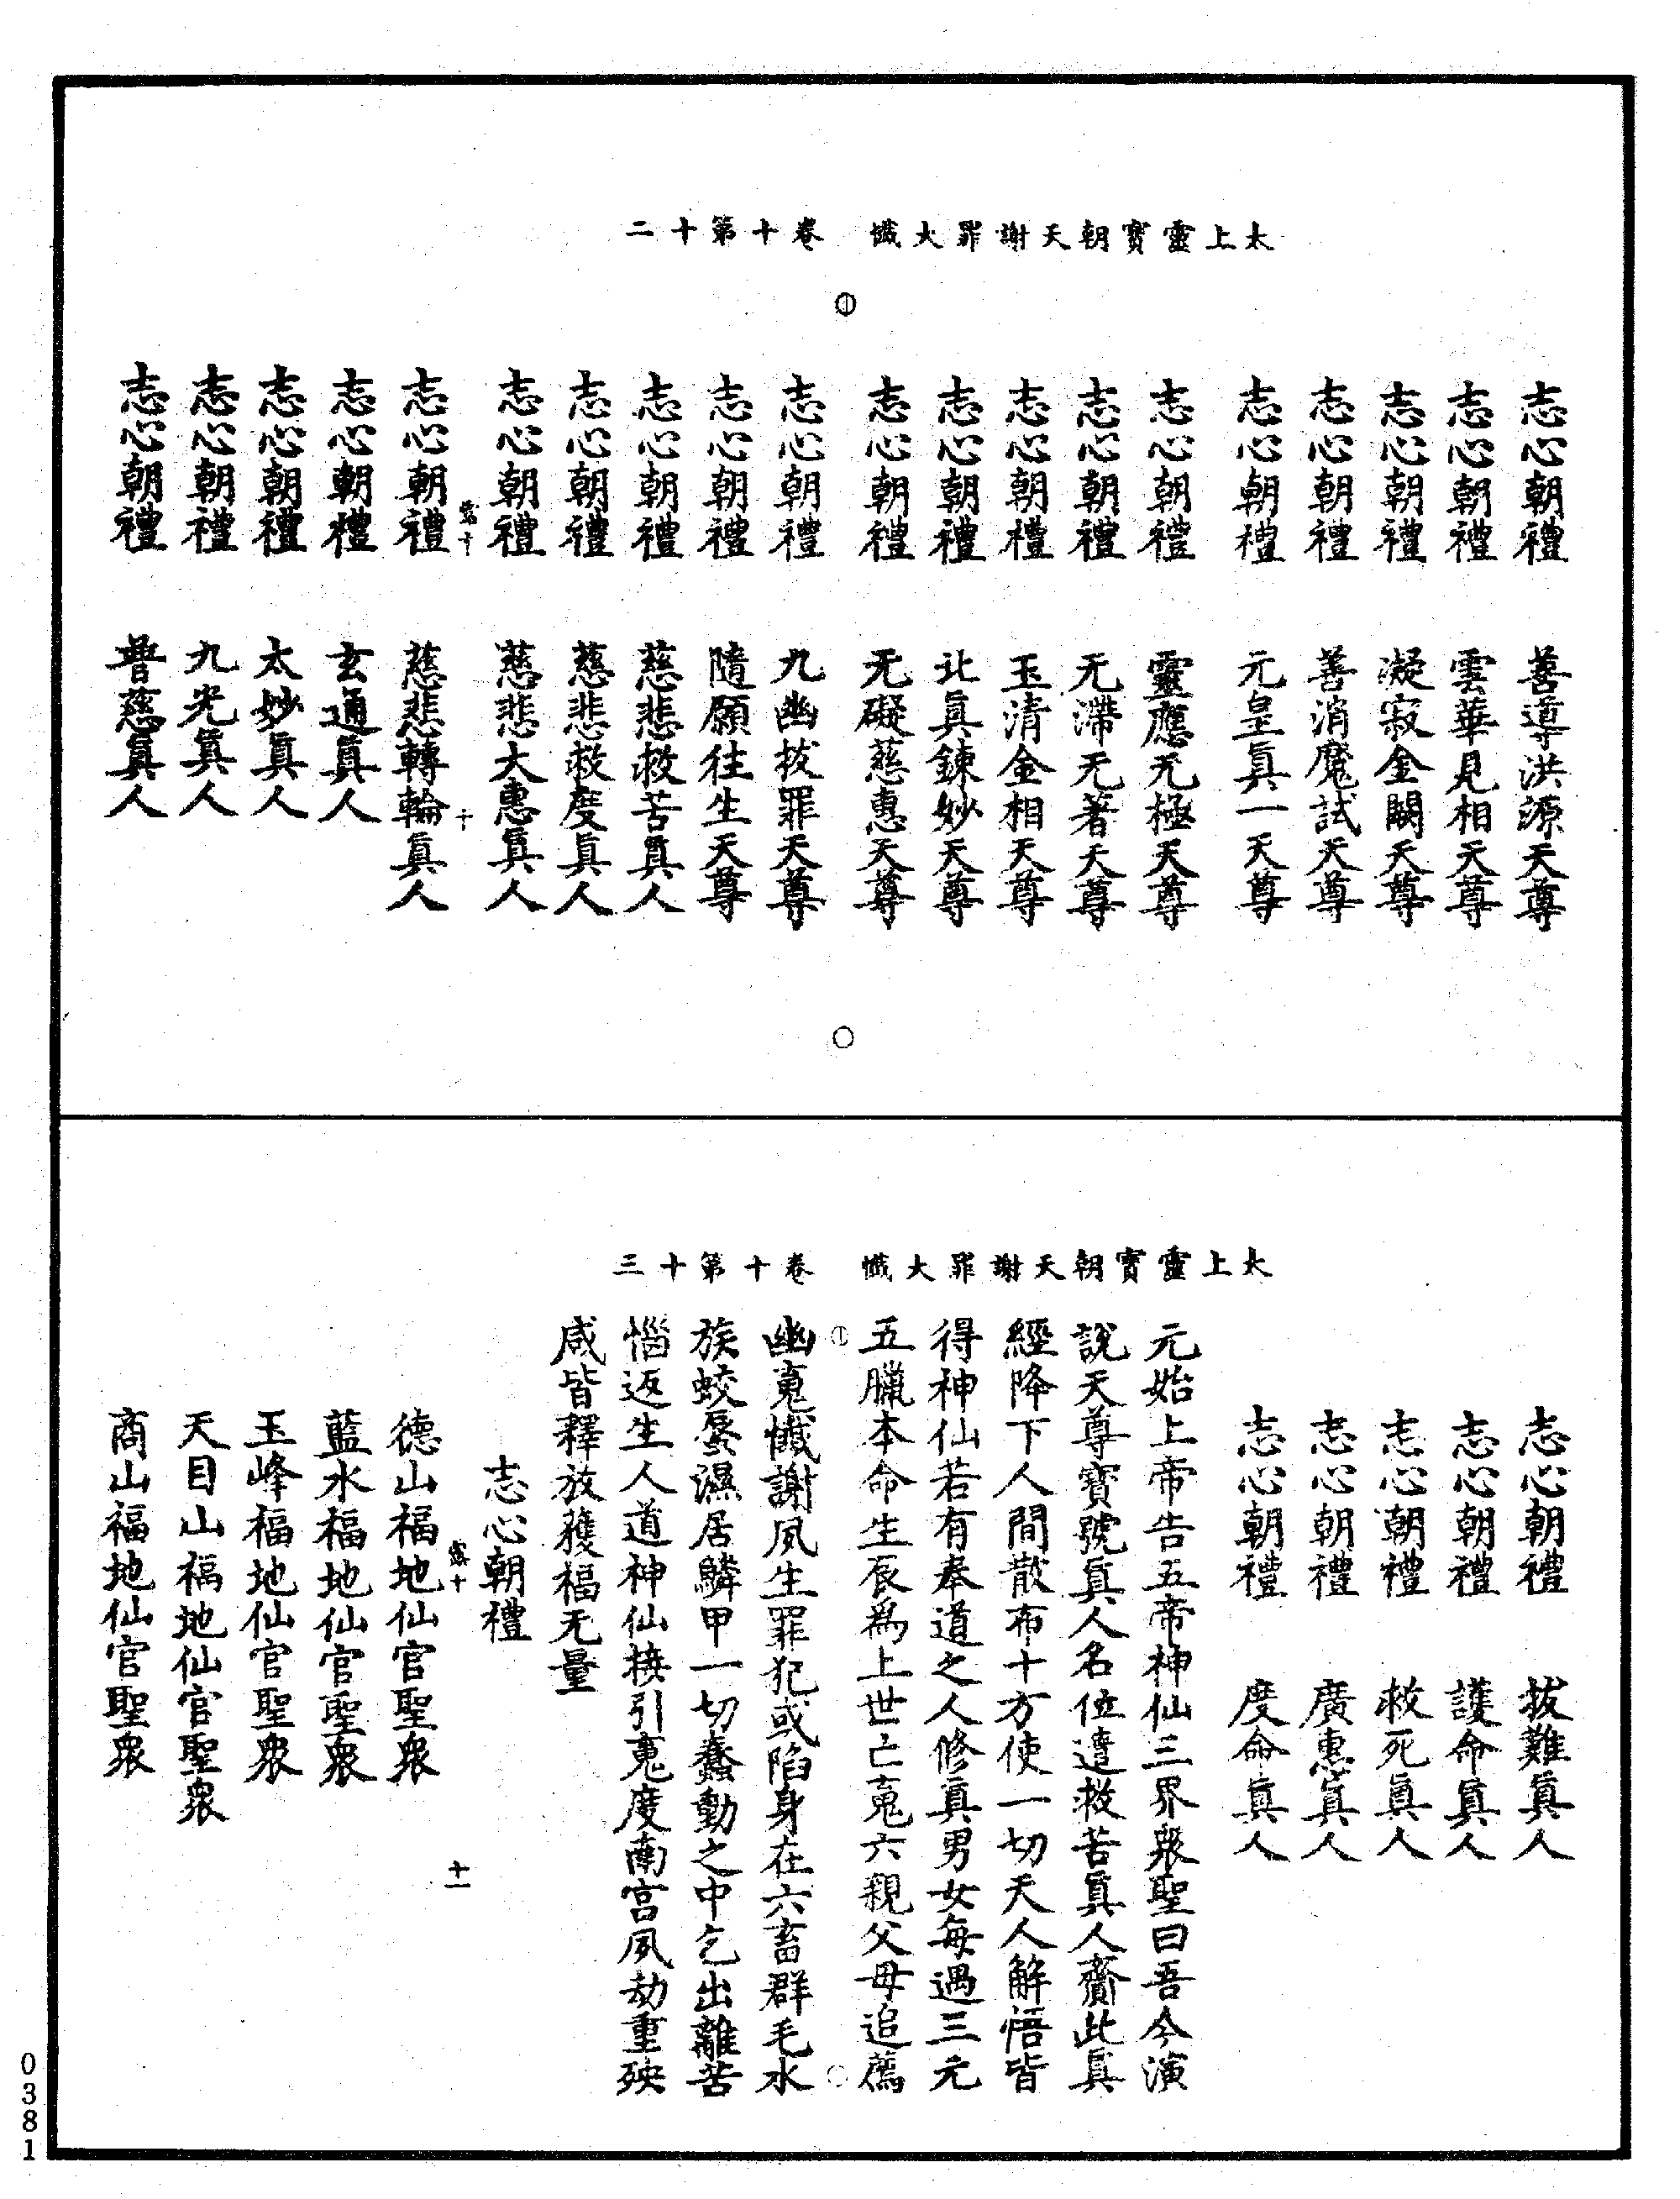 太上靈寶朝天謝罪大懺　卷十第十二
志心朝禮　善導洪源天尊
志心朝禮　雲華見相天尊
志心朝禮　凝寂金闕天尊
志心朝禮　善消魔試天尊
志心朝禮　元皇真一天尊
志心朝禮　靈應无極天尊
志心朝禮　无滯无著天尊
志心朝禮　玉清金相天尊
志心朝禮　北真鍊妙天尊
志心朝禮　无礙慈惠天尊
志心朝禮　九幽拔罪天尊
志心朝禮　隨願往生天尊
志心朝禮　慈悲救苦真人
志心朝禮　慈悲救度真人
志心朝禮　慈悲大惠真人
十
志心朝禮　慈悲轉輪真人
志心朝禮　玄通真人
志心朝禮　太妙真人
志心朝禮　九光真人
志心朝禮　普慈真人
太上靈寶朝天謝罪大懺　卷十第十三
志心朝禮　拔難真人
志心朝禮　護命真人
志心朝禮　救死真人
志心朝禮　廣惠真人
志心朝禮　度命真人
元始上帝告五帝神仙三界衆聖曰吾今演
說天尊寶號真人名位遣救苦真人齎此真
經降下人間散布十方使一切天人解悟皆
得神仙若有奉道之人修真男女每遇三元
五臘本命生辰為上世亡䰟六親父母追薦
幽䰟懺謝夙生罪犯或陷身在六畜群毛水
族蛟蜃濕居鱗甲一切蠢動之中乞出離苦
惱返生人道神仙接引䰟度南宮夙劫重殃
咸皆釋放獲福无量
志心朝禮
十一
德山福地仙官聖衆
藍水福地仙官聖衆
玉峰福地仙官聖衆
天目山福地仙官聖衆
商山福地仙官聖衆
0381